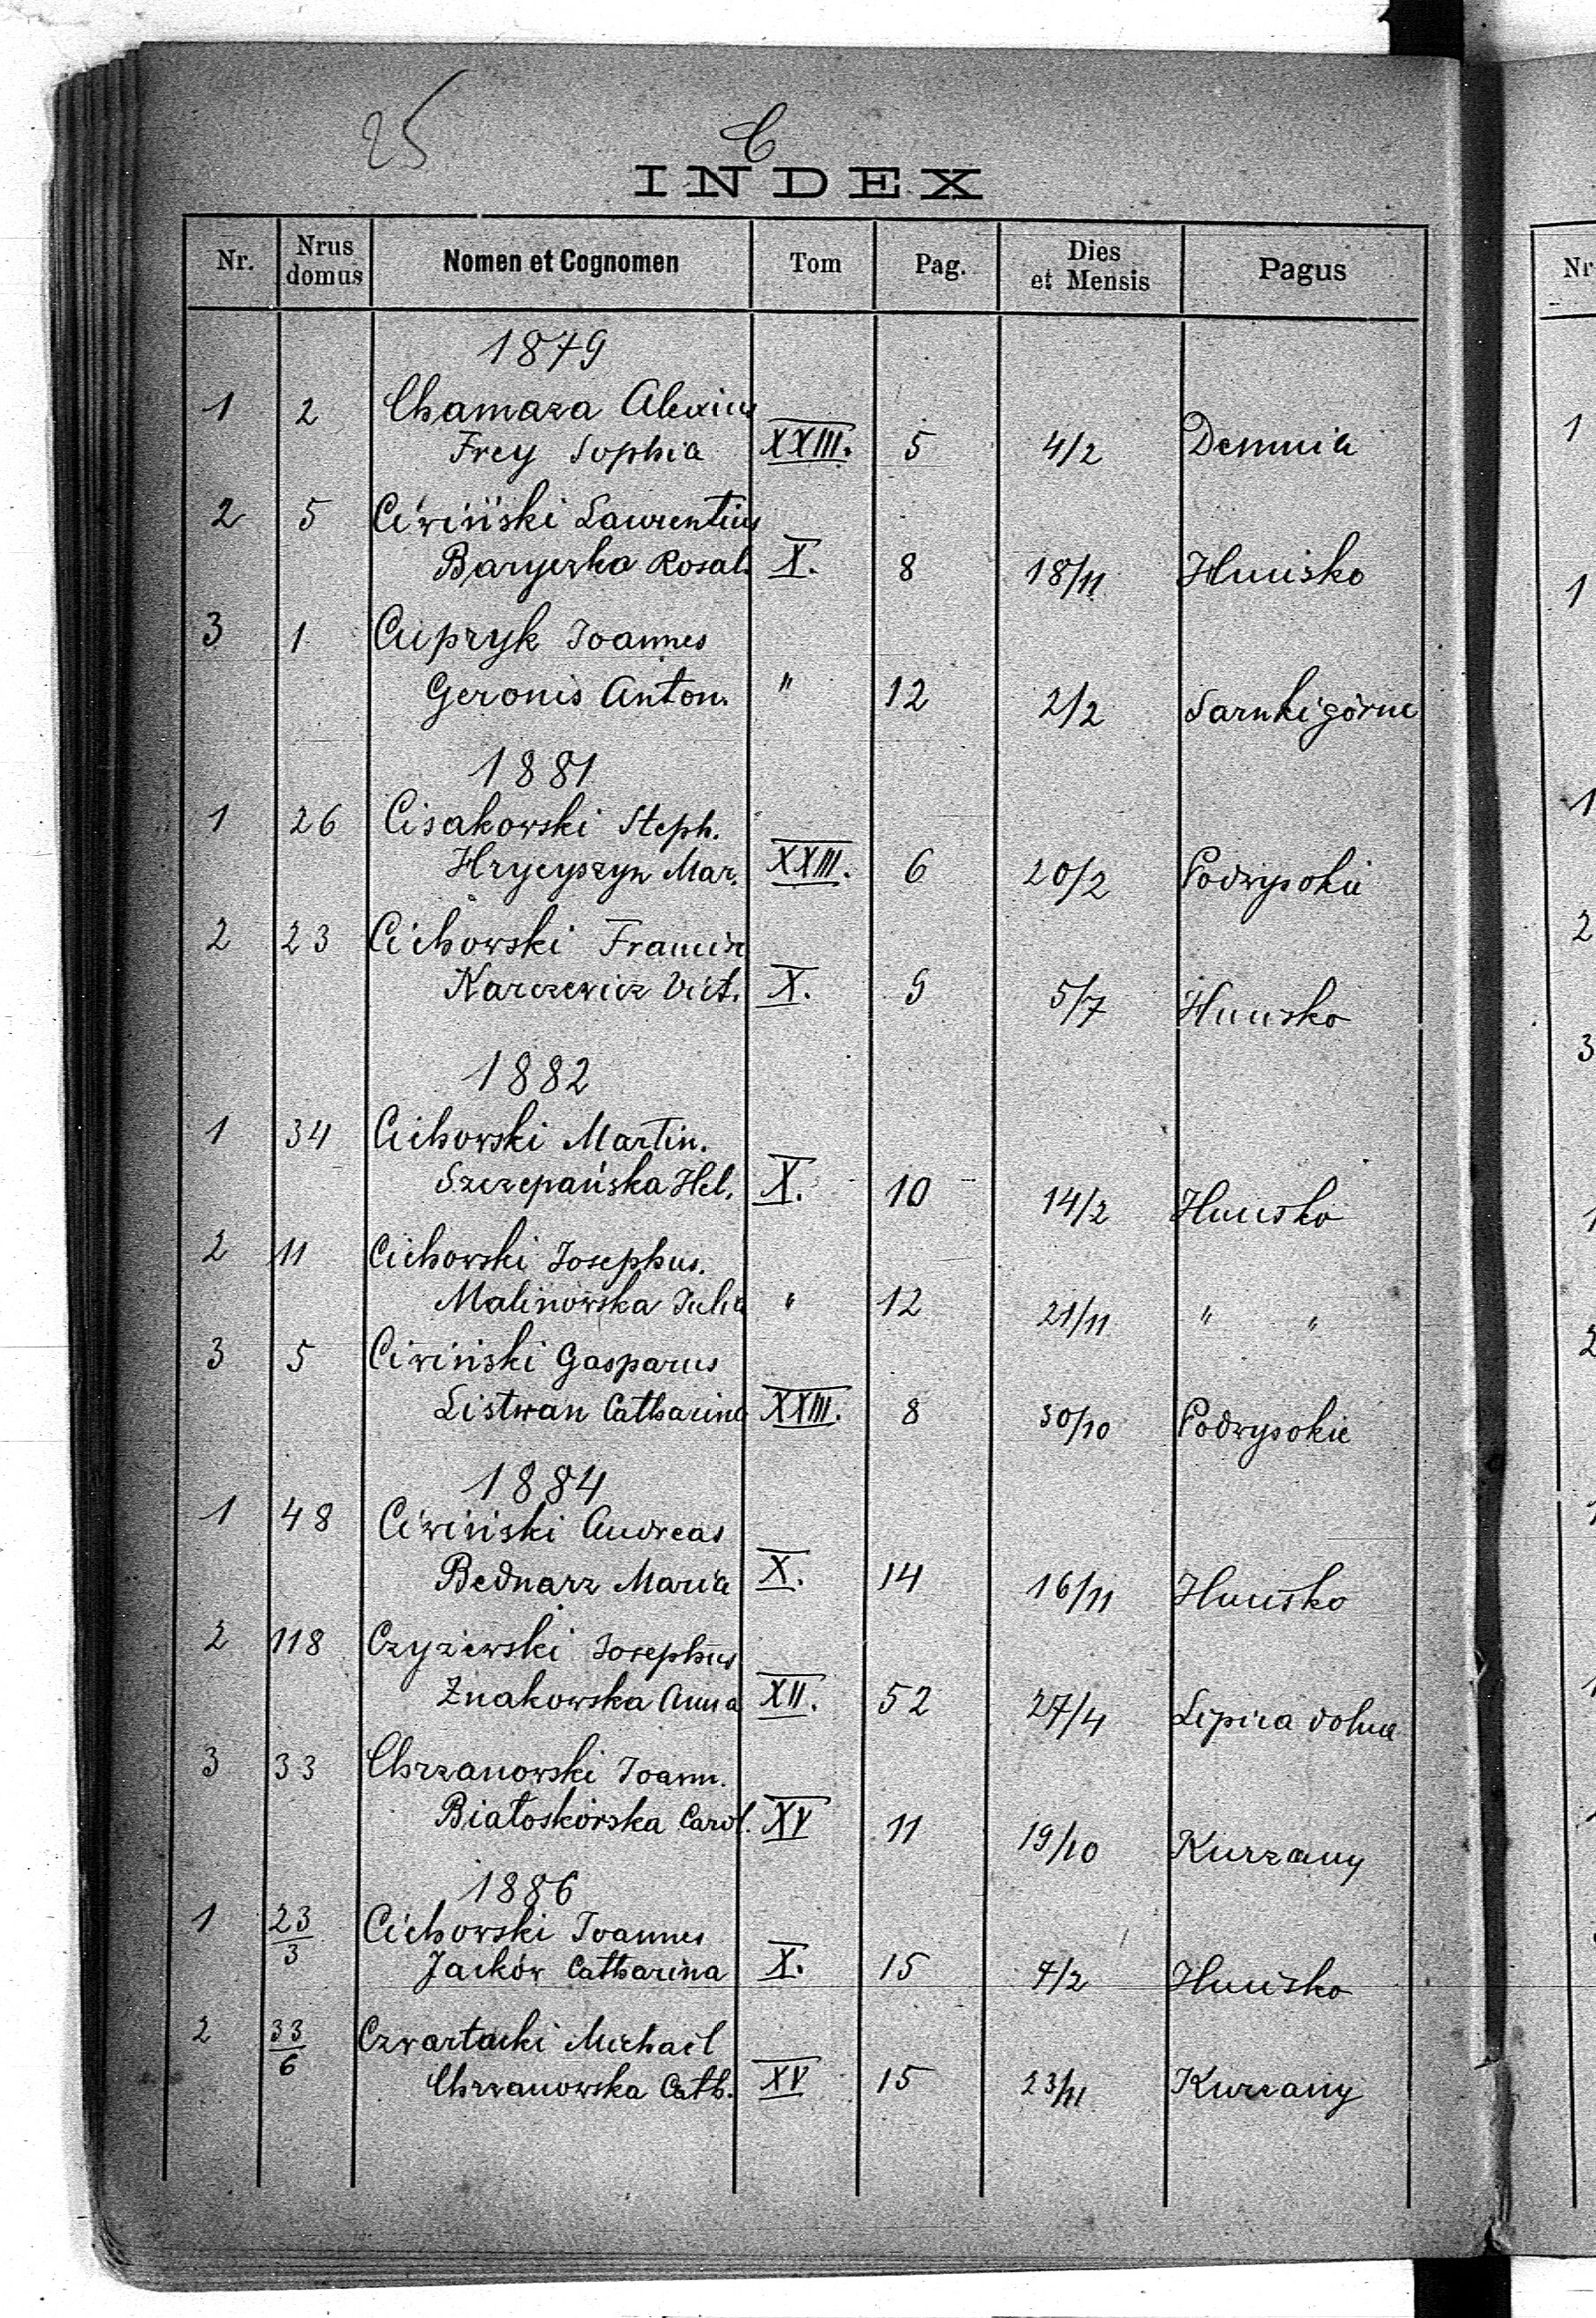 25
C
INDEX
Nr. Nrus domus Nomen et Cognomen Tom Pag. Dies et Mensis Pagus
1879
1 2 Chamaza Alexius
Frey Sophia XXIII. 5 4/2 Demnia
2 5 Ciwiński Laurentius
Baryczka Rosal. X. 8 18/11 Hucisko
3 1 Cupryk Joannes
Geronis Anton. " 12 2/2 Sarnki górne
1881
1 26 Cisakowski Steph.
Hrycyszyn Mar. XXIII. 6 20/2 Podwysokie
2 23 Cichowski Francisc
Karczewicz Vict. X. 9 5/7 Hucisko
1882
1 34 Cichowski Martin.
Szczepańska Hel. X. 10 14/2 Hucisko
2 11 Cichowski Josephus.
Malinowska Julia " 12 21/11 " "
3 5 Ciwiński Gasparus
Listwan Catharina XXIII. 8 30/10 Podwysokie
1884
1 48 Ciwiński Andreas
Bednarz Maria X. 14 16/11 Hucisko
2 118 Czyżewski Josephus
Znakowska Anna XII. 52 27/4 Lipica dolna
3 33 Chrzanowski Joann.
Białoskórska Carol. XV 11 19/10 Kurzany
1886
1 23/3 Cichowski Joannes
Jacków Catharina X. 15 7/2 Hucisko
2 33/6 Czwartacki Michael
Chrzanowska Cath. XV 15 23/11 Kurzany
Nr
1
1
1
2
3
1
2